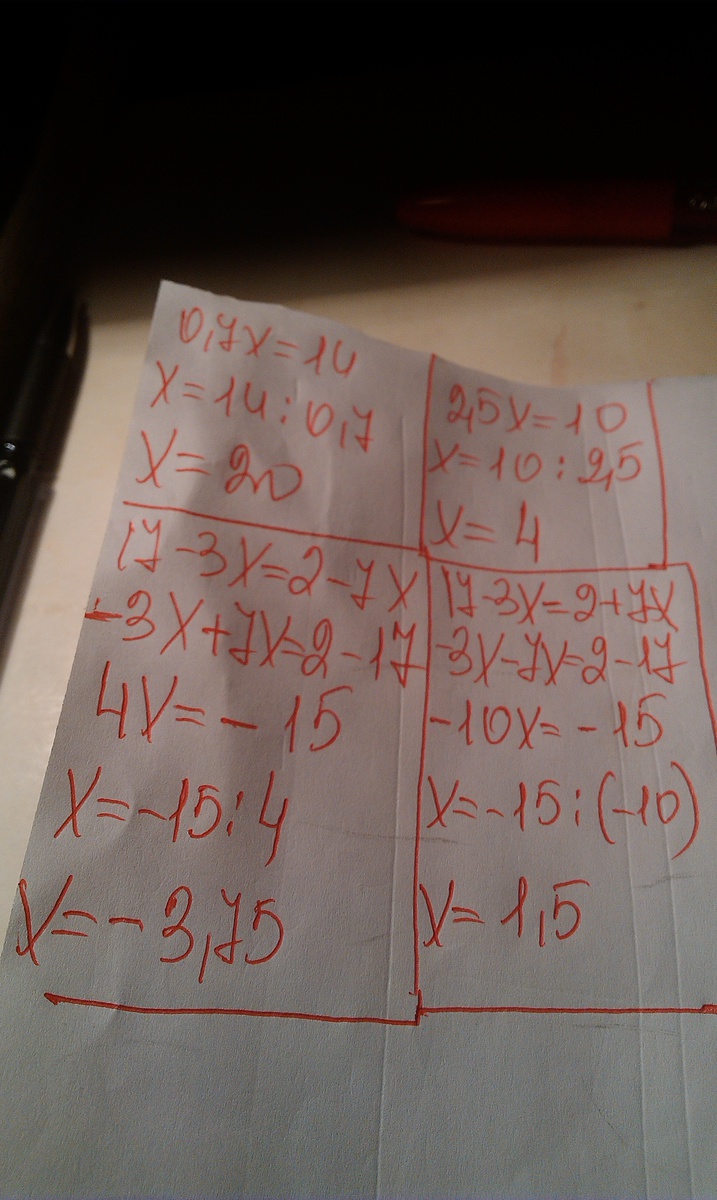 0,7x=14
x=14:0,7
x=20
2,5x=10
x=10:2,5
x=4
17-3x=2-7x
-3x+7x=2-17
4x=-15
x=-15:4
x=-3,75
17-3x=2+7x
-3x-7x=2-17
-10x=-15
x=-15:(-10)
x=1,5